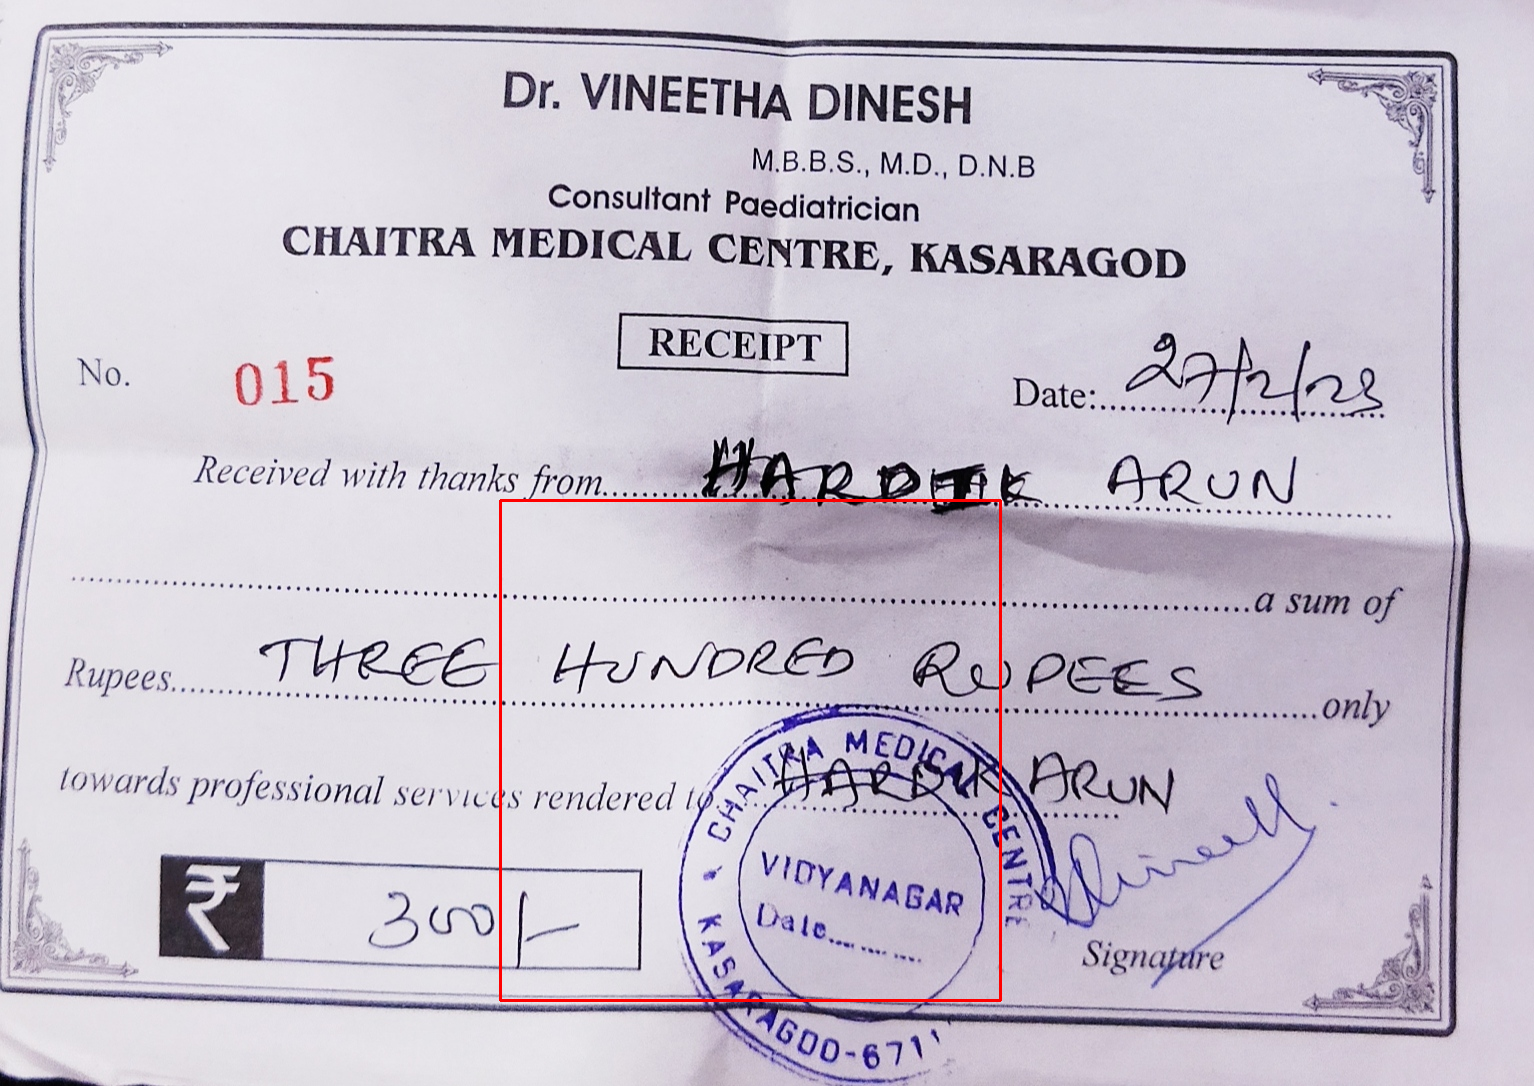 Dr. VINEETHA DINESH
M.B.B.S., M.D., D.N.B
Consultant Paediatrician
CHAITRA MEDICAL CENTRE, KASARAGOD
RECEIPT
No. 015
Date: 27/2/23
Received with thanks from HARDIK ARUN
a sum of
Rupees THREE HUNDRED RUPEES only
towards professional services rendered to HARDIK ARUN
₹ 300/-
CHAITRA MEDICAL CENTRE
VIDYANAGAR
Date
KASARAGOD-671
Signature